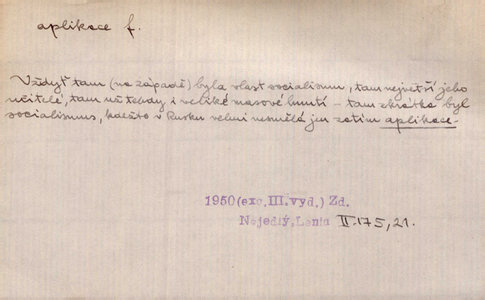 aplikace f.
Vždyť tam (na západě) byla vlast socialismu, tam největší jeho
učitelé, tam už tehdy i veliké masové hnutí – tam zkrátka byl
socialismus, kdežto v Rusku velmi nesmělá jen zatím aplikace.
1950(exc.III.vyd.) Zd.
Nejedlý,Lenin II.175,21.